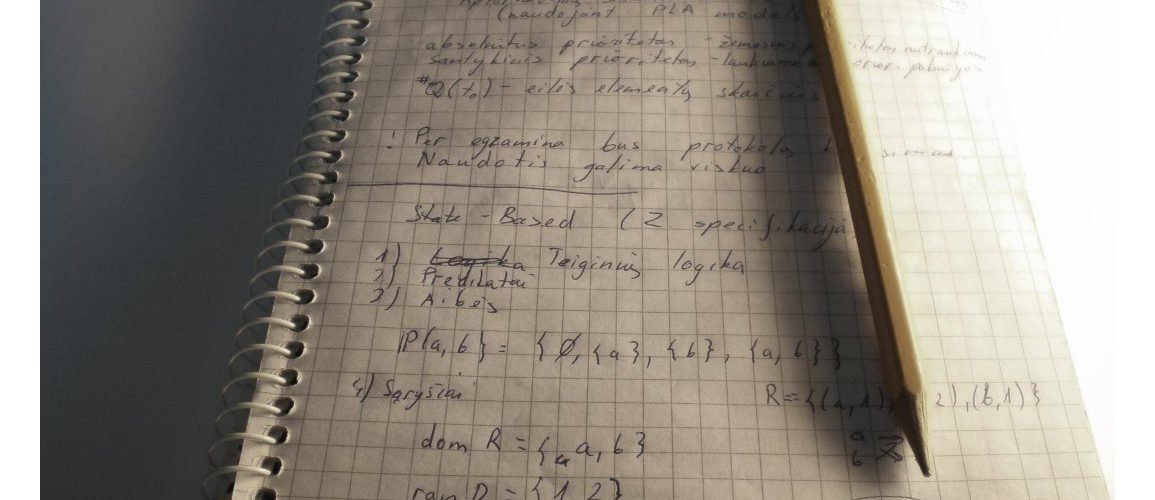 (naudojant PLA modelį
absoliutus prioritetas - žemesnis
santykinis prioritetas - laukiama
#Q(t₀) - eilės elementų skaičius
! Per egzaminą bus protokolų
Naudotis galima viskuo
State-Based (Z specifikacija
1) Logika Teiginių logika
2) Predikatai
3) Aibės
P{a, b} = {Ø, {a}, {b}, {a, b}}
4) Sąryšiai
R = {(a,1), 2), (b,1)}
a
b
dom R = {a a, b}
ran R = {1, 2}